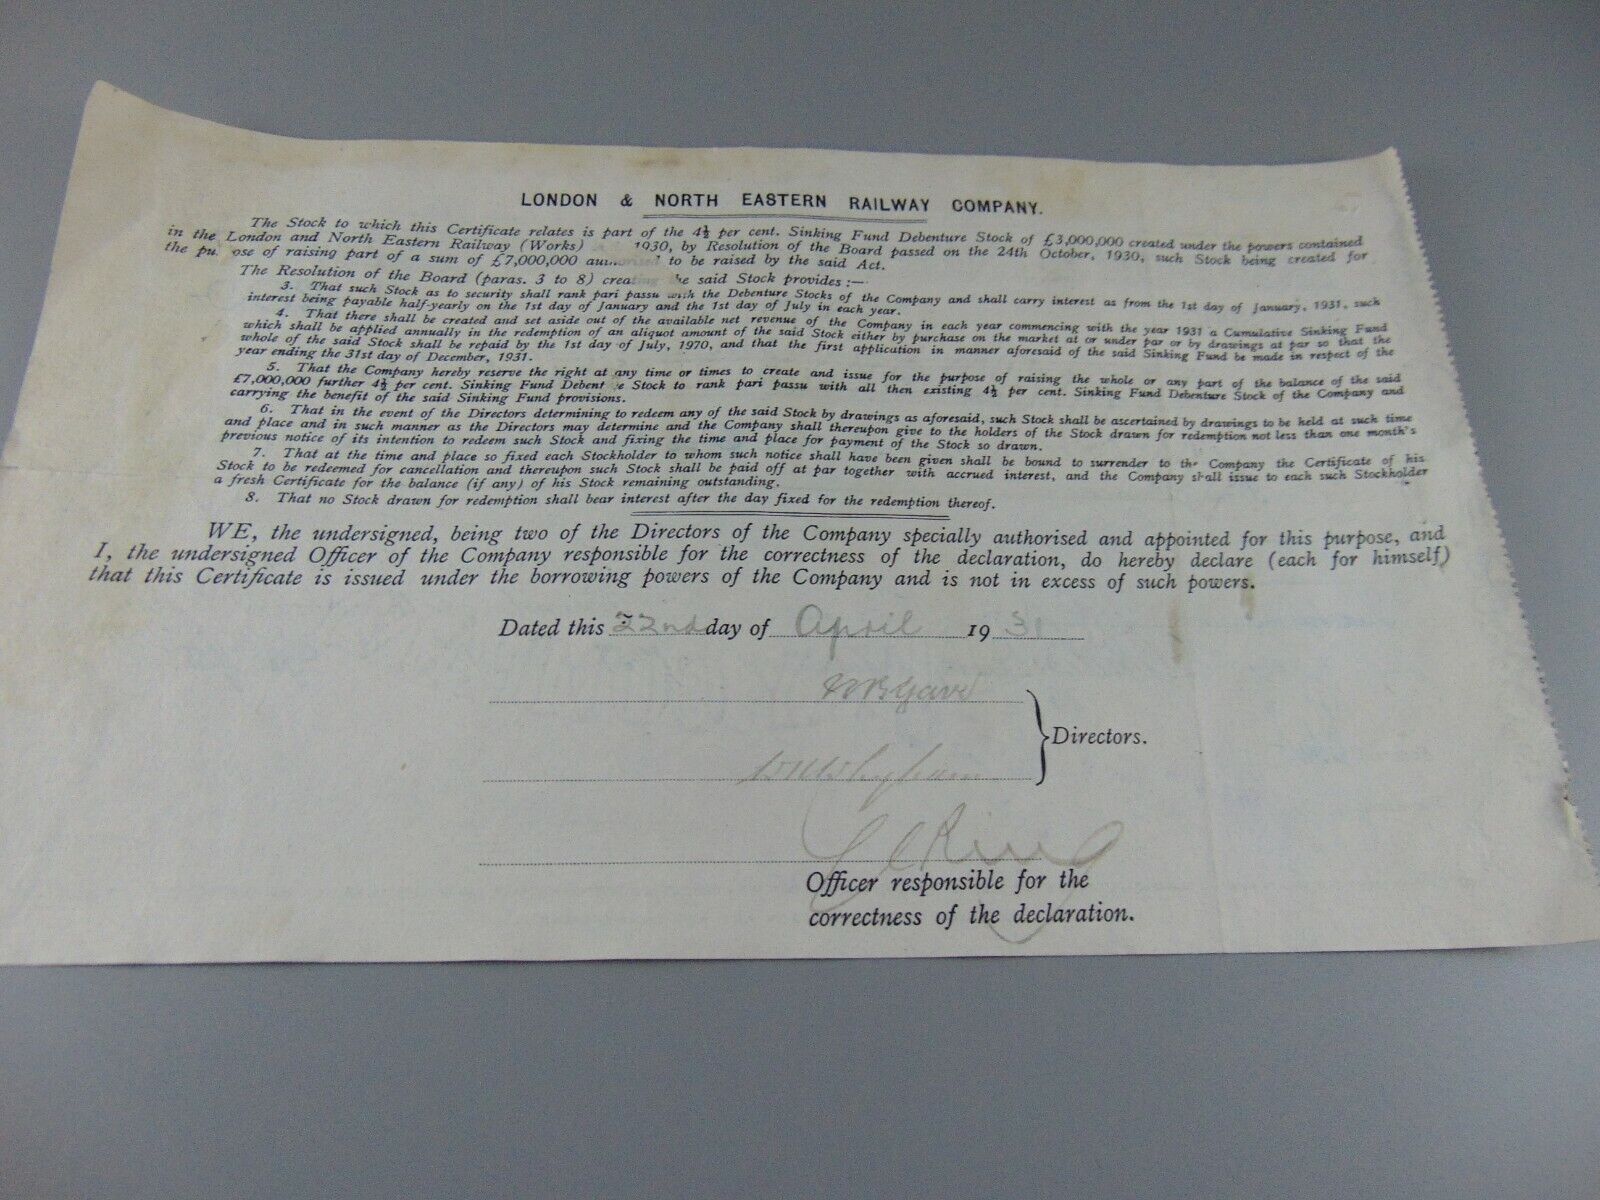 LONDON & NORTH EASTERN RAILWAY COMPANY.
The Stock to which this Certificate relates is part of the 4½ per cent. Sinking Fund Debenture Stock of £3,000,000 created under the powers contained
in the London and North Eastern Railway (Works) 1930, by Resolution of the Board passed on the 24th October, 1930, such Stock being created for
the pu ose of raising part of a sum of £7,000,000 authorised to be raised by the said Act.
The Resolution of the Board (paras. 3 to 8) creating the said Stock provides:—
3. That such Stock as to security shall rank pari passu with the Debenture Stocks of the Company and shall carry interest as from the 1st day of January, 1931, such
interest being payable half-yearly on the 1st day of January and the 1st day of July in each year.
4. That there shall be created and set aside out of the available net revenue of the Company in each year commencing with the year 1931 a Cumulative Sinking Fund
which shall be applied annually in the redemption of an aliquot amount of the said Stock either by purchase on the market at or under par or by drawings at par so that the
whole of the said Stock shall be repaid by the 1st day of July, 1970, and that the first application in manner aforesaid of the said Sinking Fund be made in respect of the
year ending the 31st day of December, 1931.
5. That the Company hereby reserve the right at any time or times to create and issue for the purpose of raising the whole or any part of the balance of the said
£7,000,000 further 4½ per cent. Sinking Fund Debent e Stock to rank pari passu with all then existing 4½ per cent. Sinking Fund Debenture Stock of the Company and
carrying the benefit of the said Sinking Fund provisions.
6. That in the event of the Directors determining to redeem any of the said Stock by drawings as aforesaid, such Stock shall be ascertained by drawings to be held at such time
and place and in such manner as the Directors may determine and the Company shall thereupon give to the holders of the Stock drawn for redemption not less than one month's
previous notice of its intention to redeem such Stock and fixing the time and place for payment of the Stock so drawn.
7. That at the time and place so fixed each Stockholder to whom such notice shall have been given shall be bound to surrender to the Company the Certificate of his
Stock to be redeemed for cancellation and thereupon such Stock shall be paid off at par together with accrued interest, and the Company shall issue to each such Stockholder
a fresh Certificate for the balance (if any) of his Stock remaining outstanding.
8. That no Stock drawn for redemption shall bear interest after the day fixed for the redemption thereof.
WE, the undersigned, being two of the Directors of the Company specially authorised and appointed for this purpose, and
I, the undersigned Officer of the Company responsible for the correctness of the declaration, do hereby declare (each for himself)
that this Certificate is issued under the borrowing powers of the Company and is not in excess of such powers.
Dated this 22nd day of April 1931
Directors.
Officer responsible for the
correctness of the declaration.